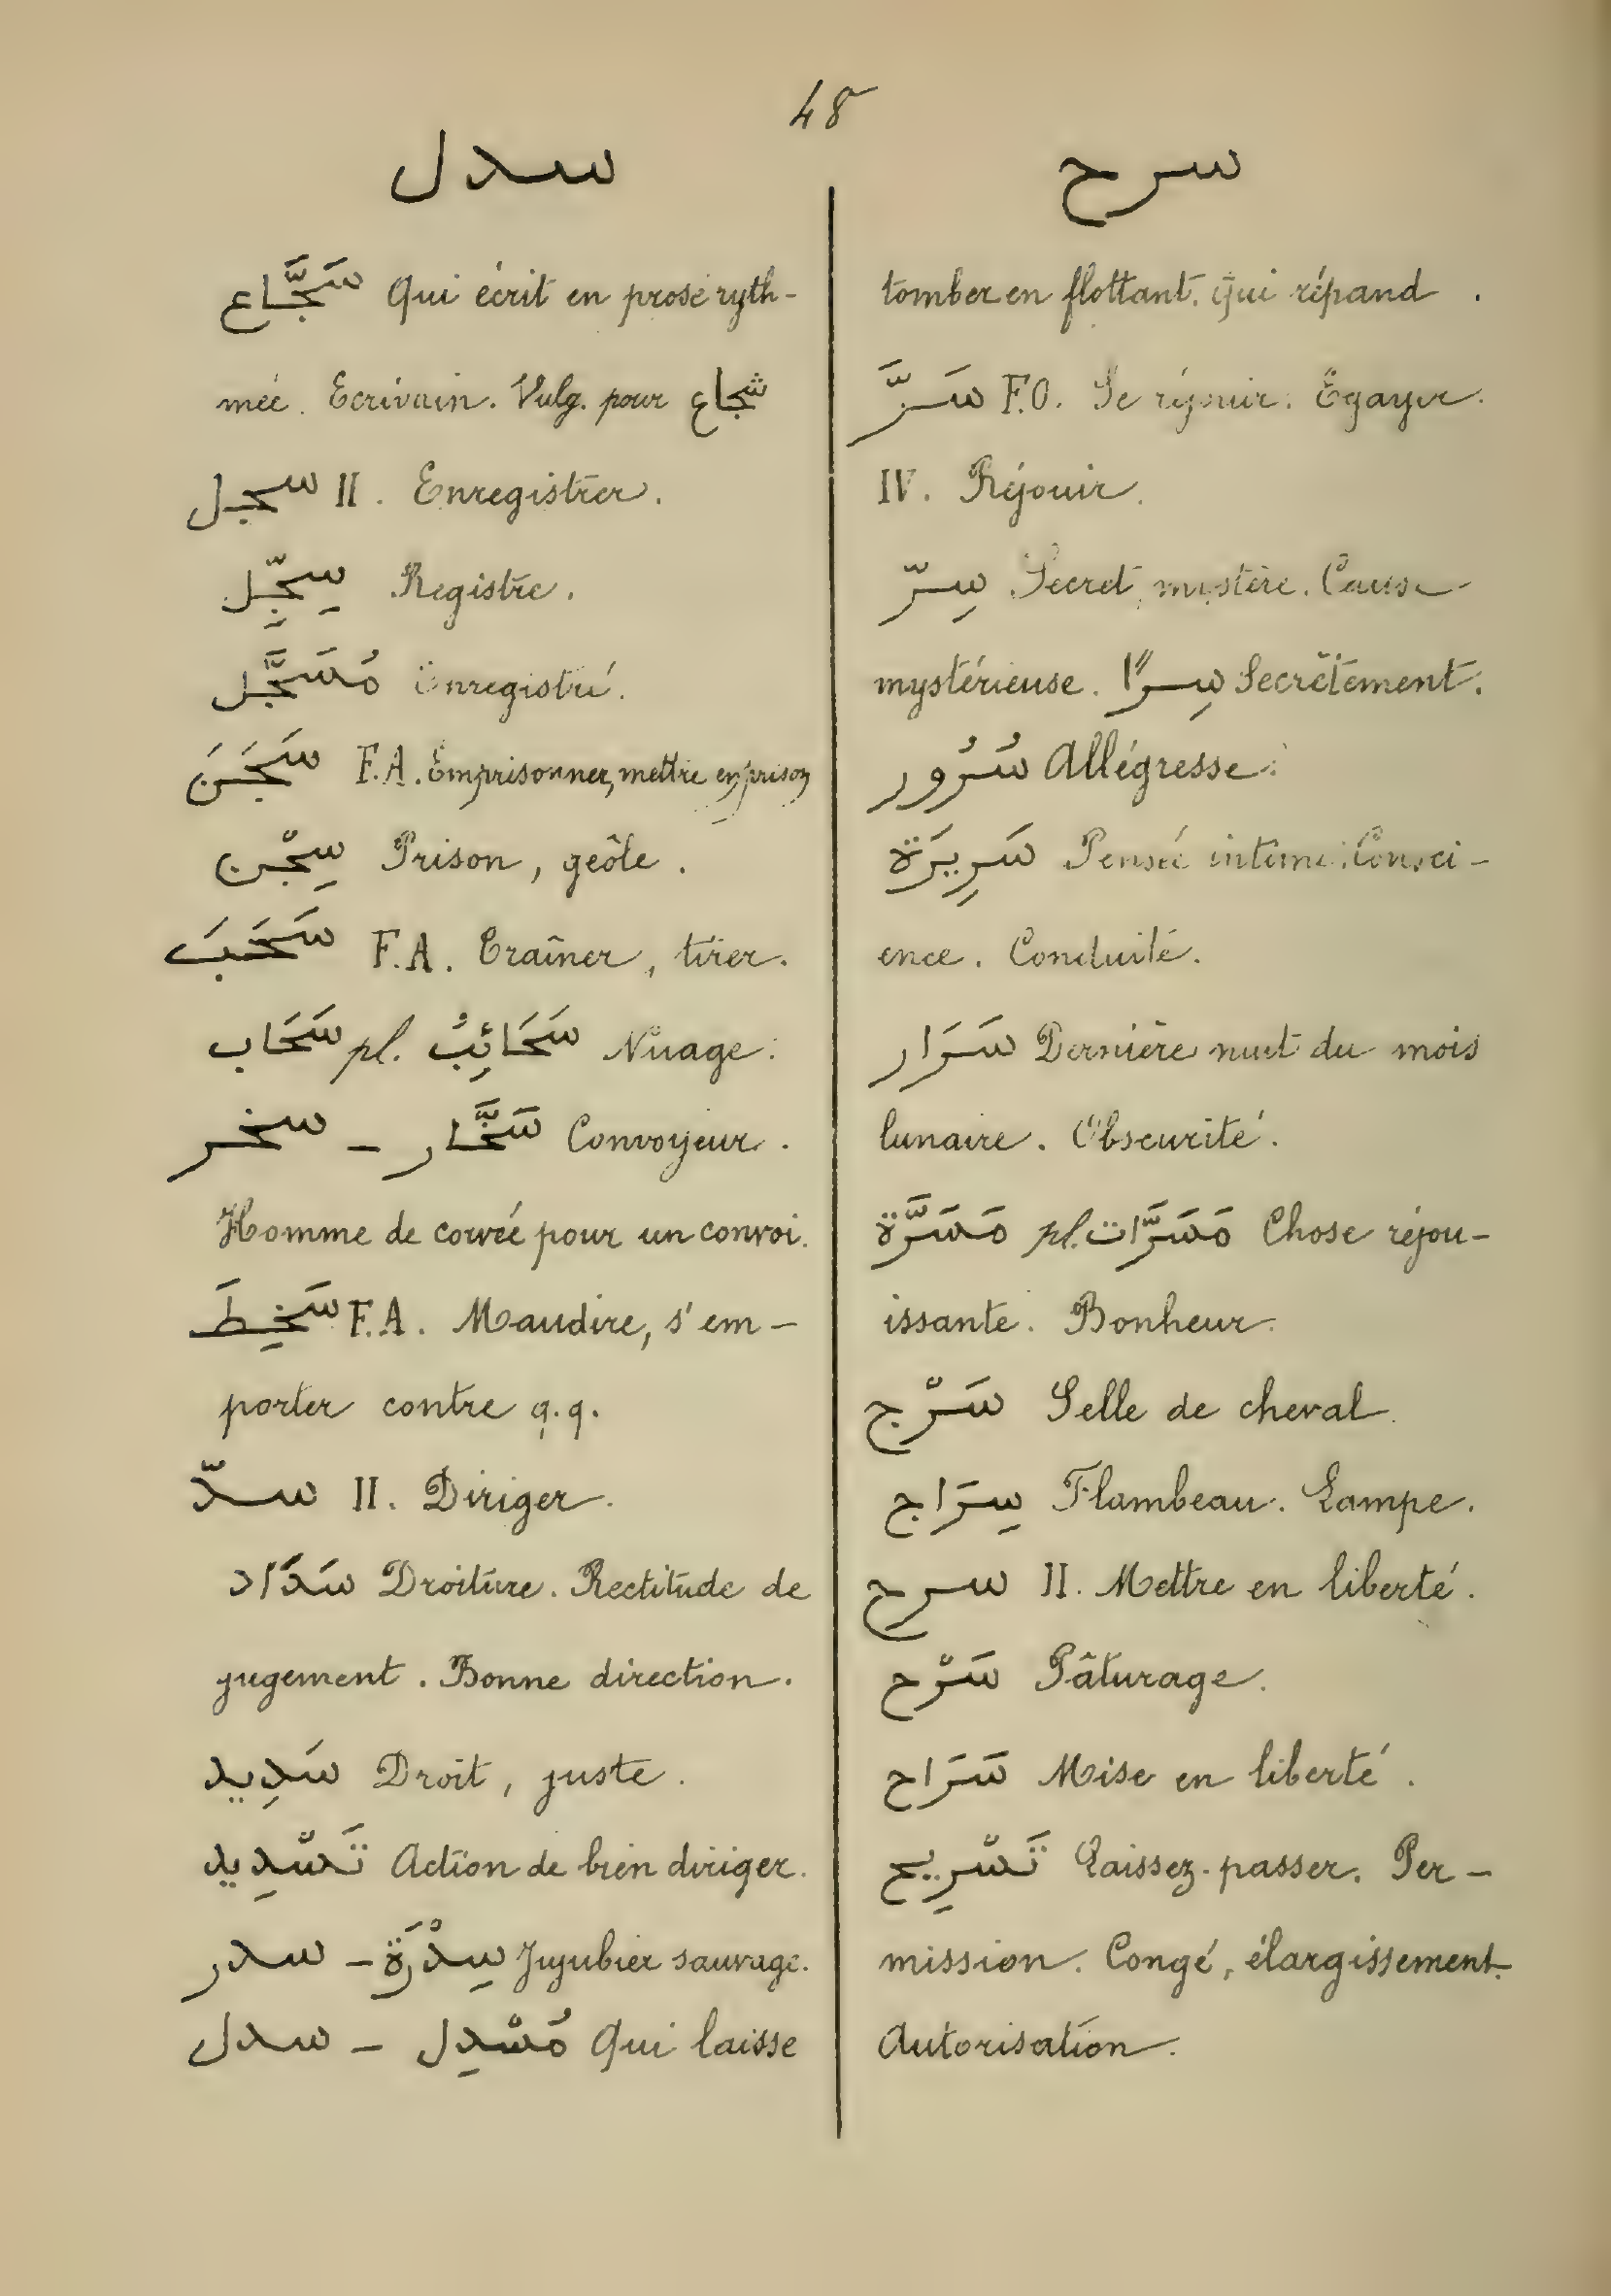 48
سدل
سَجَّاع Qui écrit en prose ryth-
mée. Ecrivain. Vulg. pour شجاع
سجل II. Enregistrer.
سِجِّل Registre.
مُسَجَّل Enregistré.
سَجَنَ F.A. Emprisonner, mettre en prison
سِجْن Prison, geôle.
سَحَبَ F.A. Traîner, tirer.
سَحَاب pl. سَحَائِبُ Nuage.
سخر – سَخَّار Convoyeur.
Homme de corvée pour un convoi.
سَخِطَ F.A. Maudire, s'em-
porter contre q.q.
سدّ II. Diriger.
سَدَاد Droiture. Rectitude de
jugement. Bonne direction.
سَدِيد Droit, juste.
تَسْدِيد Action de bien diriger.
سدر – سِدْرَة Jujubier sauvage.
سدل – مُسْدِل Qui laisse
سرح
tomber en flottant. qui répand.
سَرَّ F.O. Se réjouir. Egayer.
IV. Réjouir.
سِرّ Secret, mystère. Cause
mystérieuse. سِرًا Secrètement.
سُرُور Allégresse.
سَرِيرَة Pensée intime. Consci-
ence. Conduite.
سَرَار Dernière nuit du mois
lunaire. Obscurité.
مَسَرَّة pl. مَسَرَّات Chose réjou-
issante. Bonheur.
سَرْج Selle de cheval.
سِرَاج Flambeau. Lampe.
سرح II. Mettre en liberté.
سَرْح Pâturage.
سَرَاح Mise en liberté.
تَسْرِيح Laissez-passer. Per-
mission. Congé, élargissement.
Autorisation.